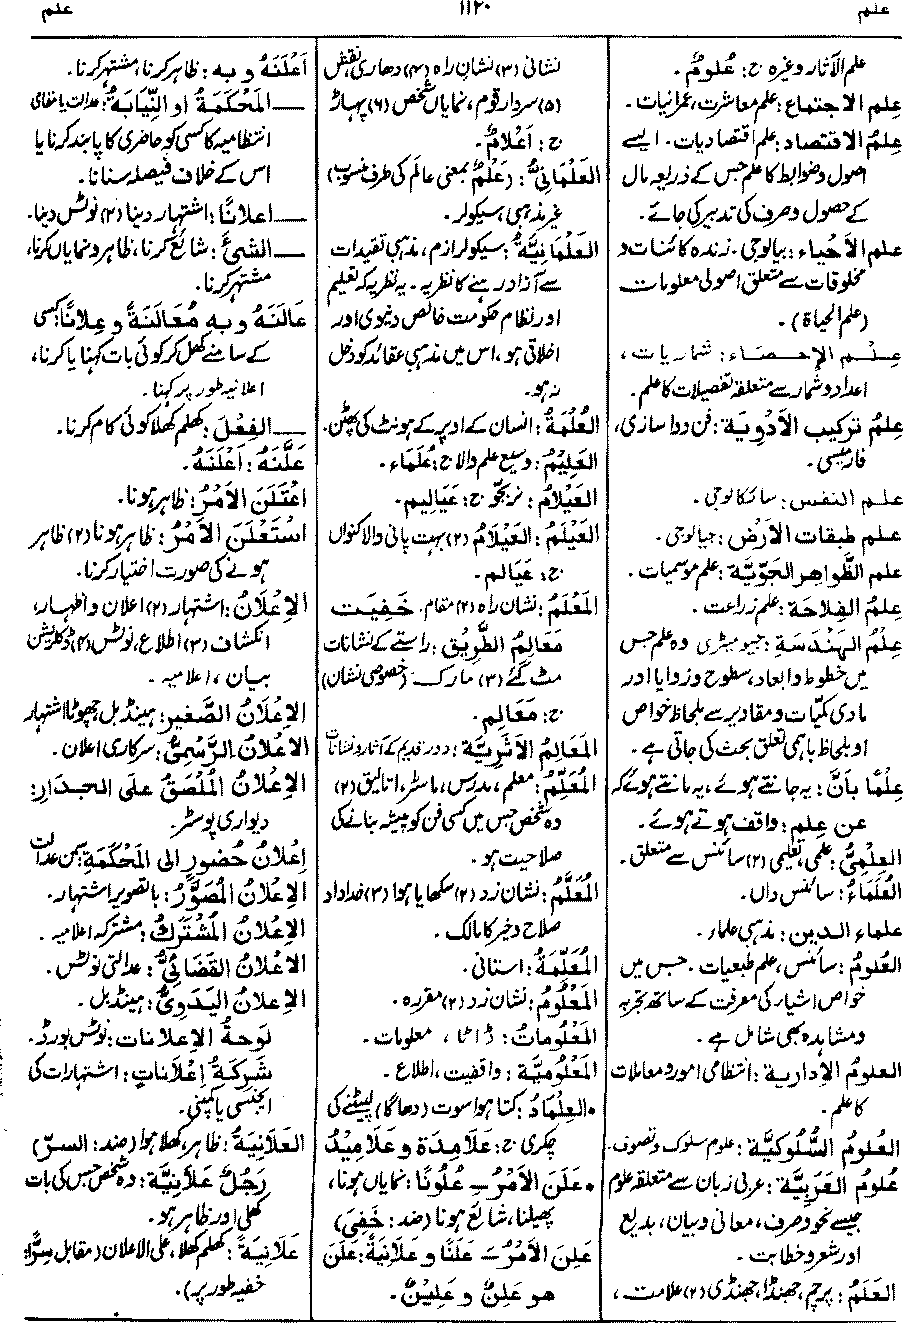 علم
۱۱۲۰
علم
علم الآثار وغیرہ ج: عُلومٌ ۔
عِلم الاجتماع: علم معاشرت، عمرانیات ۔
عِلمُ الاقتصاد: علم اقتصادیات ۔ ایسے
اصول وضوابط کا علم جس کے ذریعہ مال
کے حصول وصرف کی تدبیر کی جائے ۔
علم الأحیاء: بیالوجی ۔ زندہ کائنات و
مخلوقات سے متعلق اصولی معلومات
(علم الحیاة) ۔
عِلْم الإحصاء: شماریات ،
اعداد وشمار سے متعلقہ تفصیلات کا علم ۔
عِلمُ ترکیب الأدْوِیة: فن دوا سازی،
فارمیسی ۔
علم النفس: سائکالوجی ۔
علم طبقات الأرض: جیالوجی ۔
علم الظَّواهر الجوِّیَّة: علم موسمیات ۔
عِلمُ الفِلاحَة: علم زراعت ۔
عِلْمُ الهَنْدَسَةِ: جیومیٹری وہ علم جس
میں خطوط و ابعاد، سطوح و زوایا اور
مادی کمیّات و مقادیر سے بلحاظ خواص
اور بلحاظ باہمی تعلق بحث کی جاتی ہے ۔
عِلْمًا بأنَّ: یہ جانتے ہوئے، یہ مانتے ہوئے کہ
عن عِلم: واقف ہوتے ہوئے ۔
العِلْمِیُّ: علمی، تعلیمی (۲) سائنس سے متعلق ۔
العُلَمَاءُ: سائنس داں ۔
علماء الدین: مذہبی علماء ۔
العُلُومُ: سائنس، علم طبعیات ۔ جس میں
خواص اشیار کی معرفت کے ساتھ تجربہ
ومشاہدہ بھی شامل ہے ۔
العلومُ الإداریة: انتظامی امور و معاملات
کا علم ۔
العُلُومُ السُّلُوکِیَّة: علوم سلوک وتصوف ۔
عُلُومُ العَرَبِیَّة: عربی زبان سے متعلقہ علوم
جیسے نحو وصرف، معانی و بیان، بدیع
اور شعر و خطابت ۔
العَلَمُ: پرچم، جھنڈا، جھنڈی (۲) علامت ،
نشانی (۳) نشان راہ (۴) دھاری، نقش
(۵) سردار قوم، نمایاں شخص (۶) پہاڑ
ج: اَعْلامٌ ۔
العَلْمَانِیُّ: (عَلْمٌ بمعنی عالم کی طرف منسوب)
غیر مذہبی، سیکولر ۔
العَلْمَانِیَّةُ: سیکولرازم، مذہبی تقیدات
سے آزاد رہنے کا نظریہ ۔ یہ نظریہ کہ تعلیم
اور نظام حکومت خالص دنیوی اور
اخلاقی ہو، اس میں مذہبی عقائد کو دخل
نہ ہو ۔
العُلْمَةُ: انسان کے اوپر کے ہونٹ کی پھٹن ۔
العَلِیْمُ: وسیع علم والا ج: عُلَمَاء ۔
العَیْلامُ: نر بجّو ج: عَیَالِیم ۔
العَیْلَمُ: العَیْلَامُ (۲) بہت پانی والا کنواں
ج: عَیَالم ۔
المَعْلَمُ: نشان راہ (۲) مقام ۔ خَفِیَت
مَعَالِمُ الطَّرِیْقِ: راستے کے نشانات
مٹ گئے (۳) مارک (خصوصی نشان)
ج: مَعَالِم ۔
المَعَالِمُ الأَثَرِیَّة: دور قدیم کے آثار و نشانات
المُعَلِّمُ: معلم، مدرس، ماسٹر، اتالیق (۲)
وہ شخص جس میں کسی فن کو پیشہ بنانے کی
صلاحیت ہو ۔
المُعَلَّمُ: نشان زد (۲) سکھایا ہوا (۳) خداداد
صلاح وخیر کا مالک ۔
المُعَلِّمَةُ: استانی ۔
المَعْلُومُ: نشان زد (۲) مقررہ ۔
المَعْلُوماتُ: ڈاٹا ، معلومات ۔
المَعْلُومِیَّة: واقفیت، اطلاع ۔
• العِلْمَادُ: کتا ہوا سوت (دھاگا) لپیٹنے کی
چکری ج: عَلامِدَة و عَلامِیْدُ
• عَلَنَ الأمْرُ ـُ عُلُونًا: نمایاں ہونا،
پھیلنا، شائع ہونا (ضد: خَفِیَ)
عَلِنَ الأمْرُ ـَ عَلَنًا و عَلانِیَةً: عَلَنَ
هو عَلِنٌ و عَلِیْنٌ ۔
اَعْلَنَهُ و به: ظاہر کرنا، مشتہر کرنا ۔
ــــ المَحْکَمَةُ او النِّیَابَةُ: عدالت یا مقامی
انتظامیہ کا کسی کو حاضری کا پابند کرنا یا
اس کے خلاف فیصلہ سنانا ۔
ــــ اعلانًا: اشتہار دینا (۲) نوٹس دینا ۔
ــــ الشیءَ: شائع کرنا، ظاہر و نمایاں کرنا،
مشتہر کرنا ۔
عَالَنَهُ و به مُعَالَنَةً و عِلانًا: کسی
کے سامنے کھل کر کوئی بات کہنا یا کرنا،
اعلانیہ طور پر کہنا ۔
ــــ الفِعْلَ: کھلم کھلا کوئی کام کرنا ۔
عَلَّنَهُ: اَعْلَنَهُ ۔
اعْتَلَنَ الأمْرُ: ظاہر ہونا ۔
اسْتَعْلَنَ الأمْرُ: ظاہر ہونا (۲) ظاہر
ہونے کی صورت اختیار کرنا ۔
الإعْلانُ: اشتہار (۲) اعلان و اظہار،
انکشاف (۳) اطلاع، نوٹس (۴) ڈکلریشن
بیان ، اعلامیہ ۔
الإعْلانُ الصَّغیر: ہینڈبل، چھوٹا اشتہار
الاعْلانُ الرَّسْمِیُّ: سرکاری اعلان ۔
الإعْلانُ المُلْصَقُ علی الجدار:
دیواری پوسٹر ۔
إعْلانُ حُضُورٍ الی المَحْکَمَةِ: سمن عدالت
الإعْلانُ المُصَوَّرُ: باتصویر اشتہار ۔
الإعْلانُ المُشْتَرَكُ: مشترکہ اعلامیہ ۔
الاعْلانُ القَضَائِیُّ: عدالتی نوٹس ۔
الإعلانُ الیَدَوِیُّ: ہینڈبل ۔
لَوحَةُ الإعلانات: نوٹس بورڈ ۔
شَرِکَةُ إعْلاناتٍ: اشتہارات کی
ایجنسی یا کمپنی ۔
العَلانِیَةُ: ظاہر، کھلا ہوا (ضد: السِرّ)
رَجُلٌ عَلانِیَّة: وہ شخص جس کی بات
کھلی اور ظاہر ہو ۔
عَلانِیَةً: کھلم کھلا، علی الاعلان (مقابل سِرًّا:
خفیہ طور پر) ۔